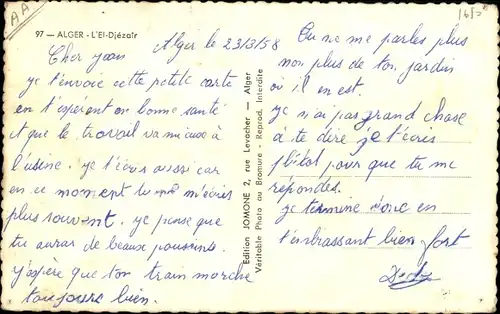 97 — ALGER - L'El-Djézaïr
Alger le 23/3/58
Cher Jean
je t'envoie cette petite carte
en t'esperent en bonne santé
et que le travail va mieux à
l'usine. je t'écris aussi car
en ce moment tu m'écris
plus souvent. je pense que
tu auras de beaux poussins.
j'espère que ton train marche
toujours bien.
Edition JOMONE 2, rue Levacher — Alger
Véritable Photo au Bromure - Reprod. Interdite
Tu ne me parles plus
non plus de ton jardin
où il en est.
je n'ai pas grand chose
à te dire je t'écris
plutôt pour que tu me
répondes.
je termine donc en
t'embrassant bien fort
Dédé